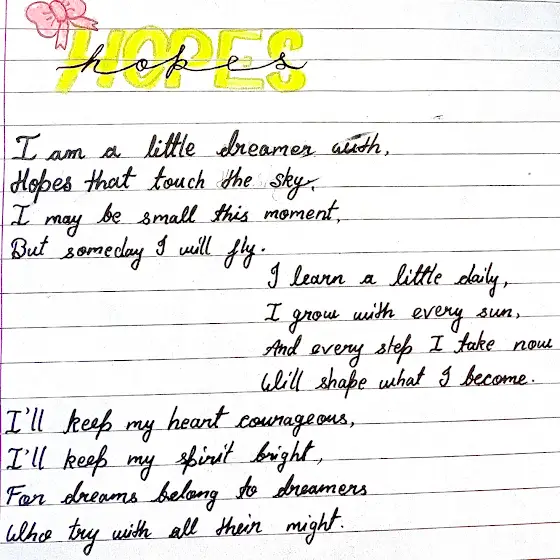 HOPES
hopes
I am a little dreamer with,
Hopes that touch the sky,
I may be small this moment,
But someday I will fly.
I learn a little daily,
I grow with every sun,
And every step I take now
Will shape what I become.
I'll keep my heart courageous,
I'll keep my spirit bright,
For dreams belong to dreamers
Who try with all their might.